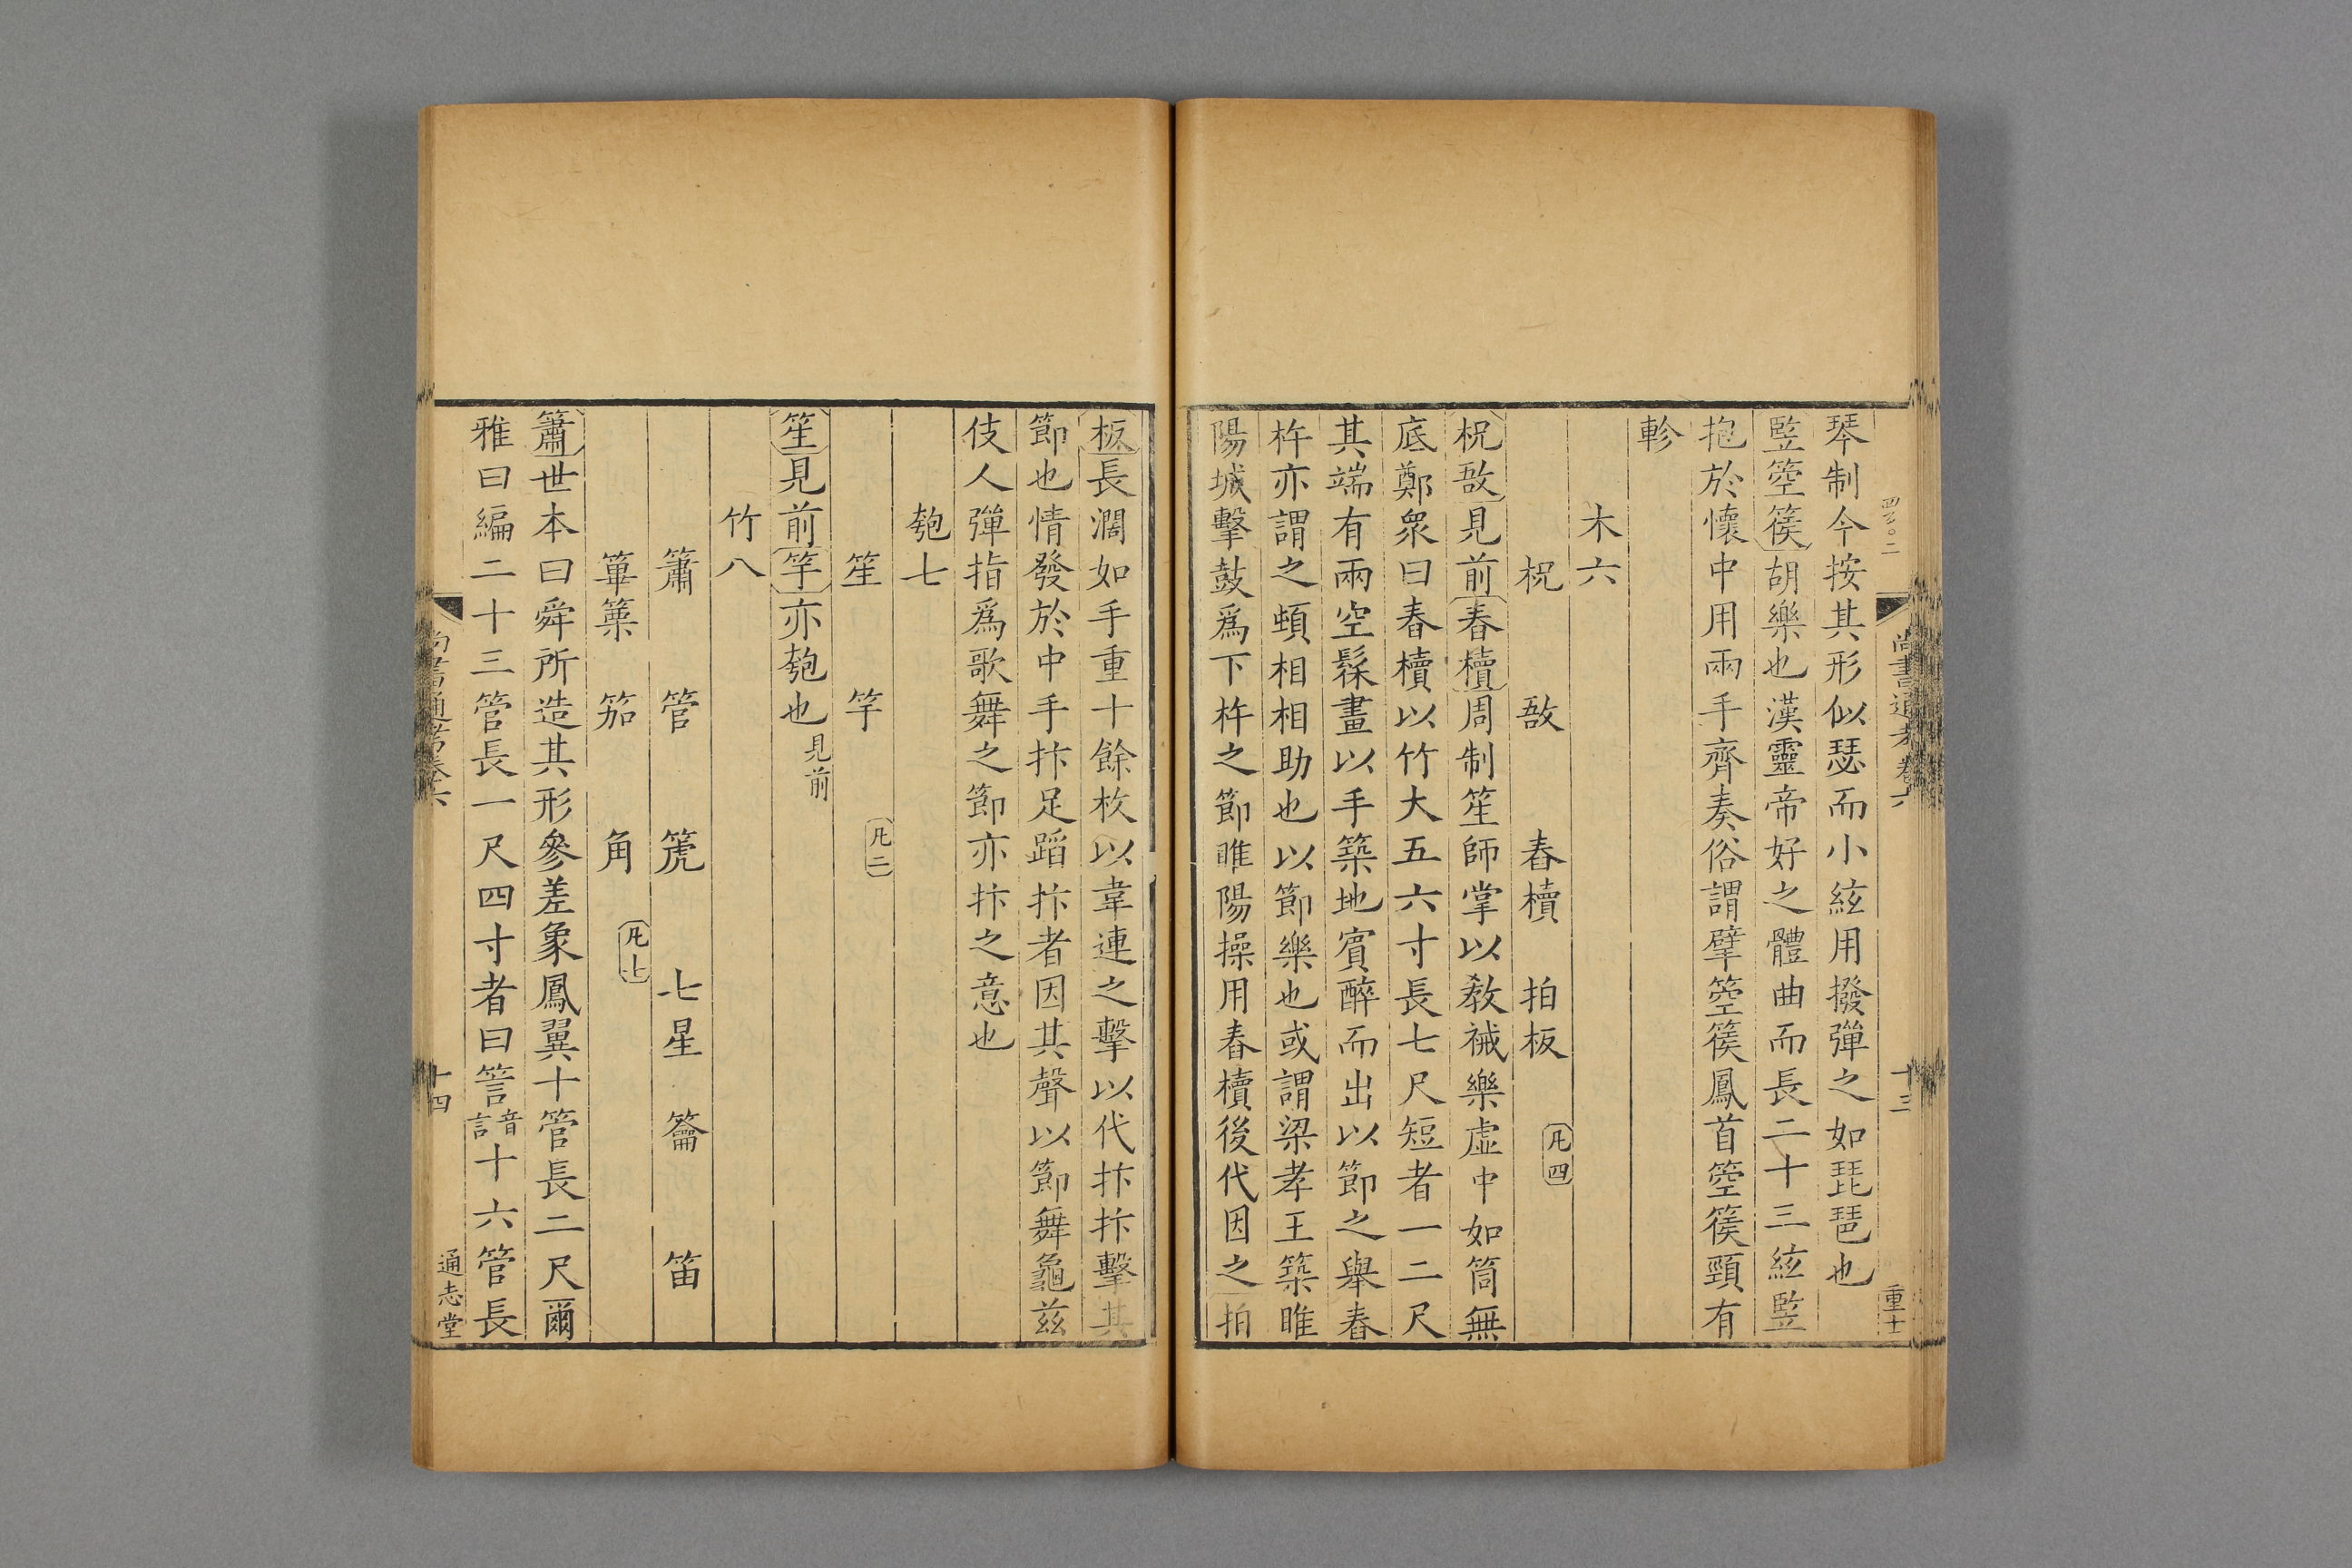 琴制今按其形似瑟而小絃用撥彈之如琵琶也
竪箜篌胡樂也漢靈帝好之體曲而長二十三絃竪
抱於懷中用兩手齊奏俗謂擘箜篌鳳首箜篌頸有
軫
木六
柷 敔 舂牘 拍板 凡四
柷敔見前舂牘周制笙師掌以敎祴樂虛中如筒無
底鄭衆曰舂牘以竹大五六寸長七尺短者一二尺
其端有兩空髹畫以手築地賓醉而出以節之舉舂
杵亦謂之頓相相助也以節樂也或謂梁孝王築睢
陽城擊鼓爲下杵之節睢陽操用舂牘後代因之拍
尚書通考卷六 十三
板長濶如手重十餘枚以韋連之擊以代抃抃擊其
節也情發於中手抃足蹈抃者因其聲以節舞龜茲
伎人彈指爲歌舞之節亦抃之意也
匏七
笙 竽 凡二
笙見前竽亦匏也見前
竹八
簫 管 篪 七星 籥 笛
篳篥 笳 角 凡七
簫世本曰舜所造其形參差象鳳翼十管長二尺爾
雅曰編二十三管長一尺四寸者曰䇾音言十六管長
尚書通考卷六 十四 通志堂